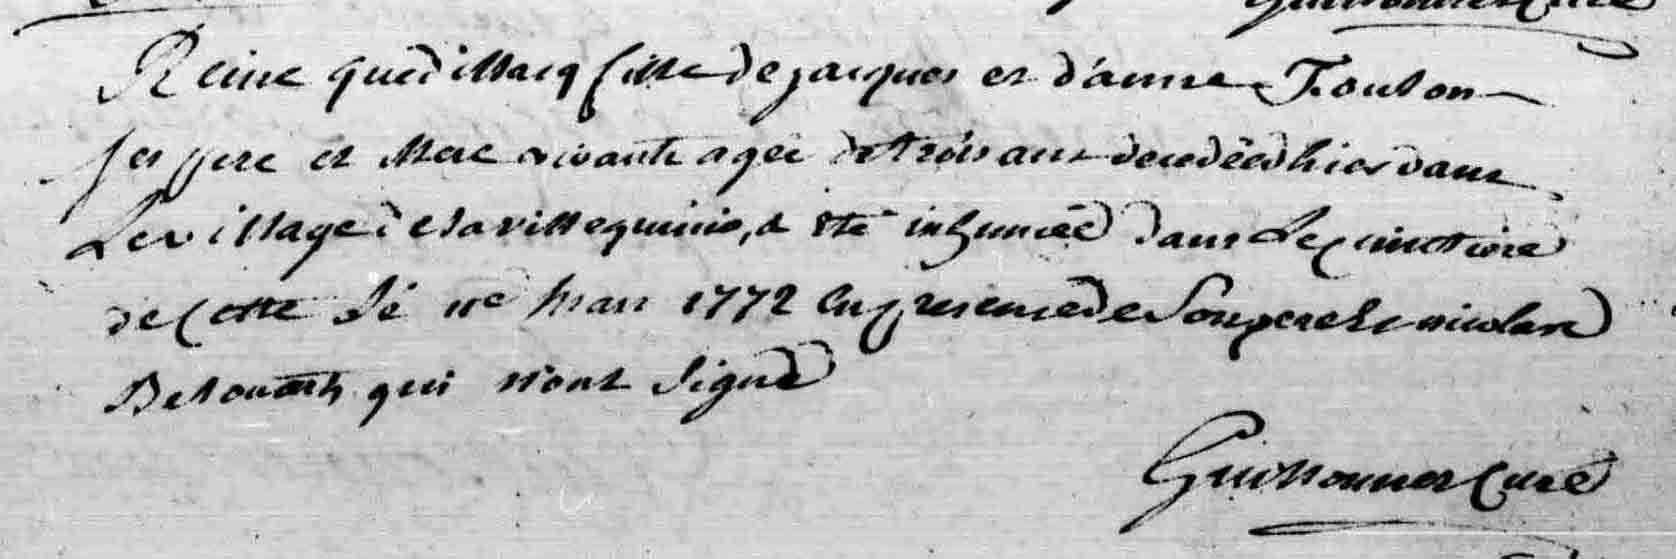 Reine quedillacq fille de jacques et d'anne Toulon
ses pere et Mere vivants agée de trois ans decedéé hier dans
Le village de la ville quinio, a été inhumée dans Le cimetiere
de cette 11e Mars 1772 en presence de Son pere et nicolas
Belouard qui n'ont Signé
Guillonner Curé